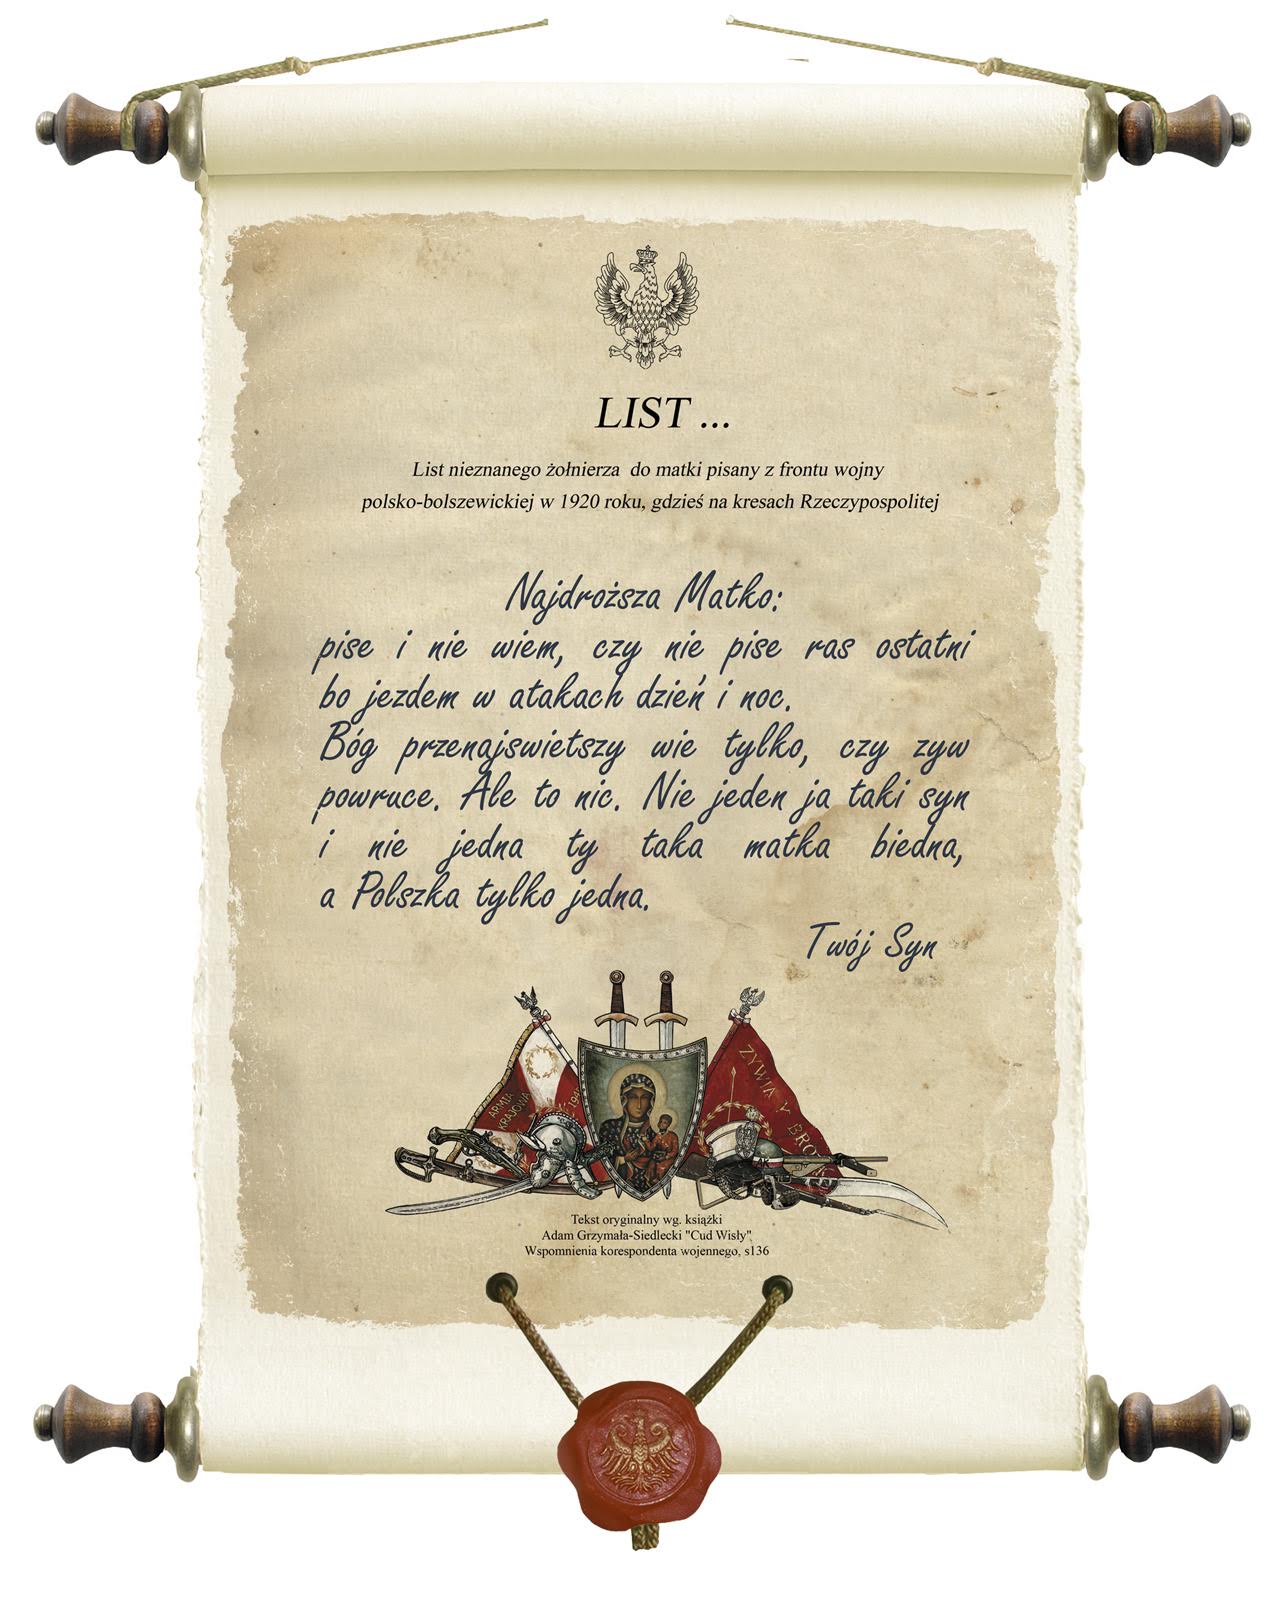 LIST ...
List nieznanego żołnierza do matki pisany z frontu wojny
polsko-bolszewickiej w 1920 roku, gdzieś na kresach Rzeczypospolitej
Najdroższa Matko:
pise i nie wiem, czy nie pise ras ostatni
bo jezdem w atakach dzień i noc.
Bóg przenajswietszy wie tylko, czy zyw
powruce. Ale to nic. Nie jeden ja taki syn
i nie jedna ty taka matka biedna,
a Polszka tylko jedna.
Twój Syn
ARMIA
KRAJOWA
ŻYWIĄ Y BRO
Tekst oryginalny wg. książki
Adam Grzymała-Siedlecki "Cud Wisły"
Wspomnienia korespondenta wojennego, s136